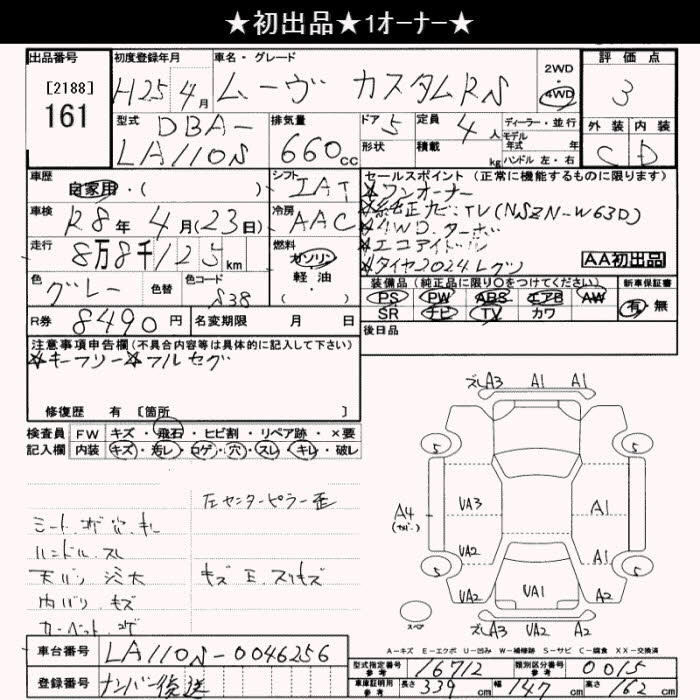 ★初出品★1オーナー★
出品番号
[2188]
161
初度登録年月
H25年4月
車名・グレード
ムーヴ カスタムRS
2WD
・
4WD
評価点
3
外装 内装
C D
型式
DBA-
LA110S
排気量
660cc
ドア 5
形状
定員 4人
積載 kg
ディーラー・並行
モデル
年式 年
ハンドル 左・右
車歴
自家用・( )
シフト
IAT
車検
R8年4月(23日)
冷房
AAC
走行
8万8千125km
燃料
ガソリン
軽油
・( )
色
グレー
色替
色コード
S38
R券 8490円
名変期限 月 日
セールスポイント(正常に機能するものに限ります)
☆ワンオーナー
☆純正ナビ・TV(NSZN-W63D)
☆4WD.ターボ
☆エコアイドル
☆タイヤ2024レグノ
AA初出品
装備品(純正品に限り○をつけてください)
PS PW ABS エアB AW
SR ナビ TV カワ
新車保証書
有・無
後日品
注意事項申告欄(不具合内容等は具体的に記入して下さい)
☆キーフリー☆フルセグ
修復歴 有 [箇所 ]
検査員
記入欄
FW キズ・飛石・ヒビ割・リペア跡・×要
内装 キズ・汚レ・コゲ・穴・スレ・キレ・破レ
左センターピラー歪
シート.コゲ.穴.キレ
ハンドル.スレ
天バリ 汚大
キズ E.スリキズ
内バリ キズ
カーペット.コゲ
ズレA3 A1 A1
5 5
A4
UA3 A1
UA2 A1
5 5
UA2 UA1 A2
スペア
ズレA3 UA2 A2
A-キズ E-エクボ U-凹み W-補修跡 S-サビ C-腐食 XX-交換済
車台番号 LA110S-0046256
登録番号 ナンバー後送
型式指定番号
参考
16712
類別区分番号
参考
0015
車庫証明用
参考
長さ 339cm 幅 147cm 高さ 162cm